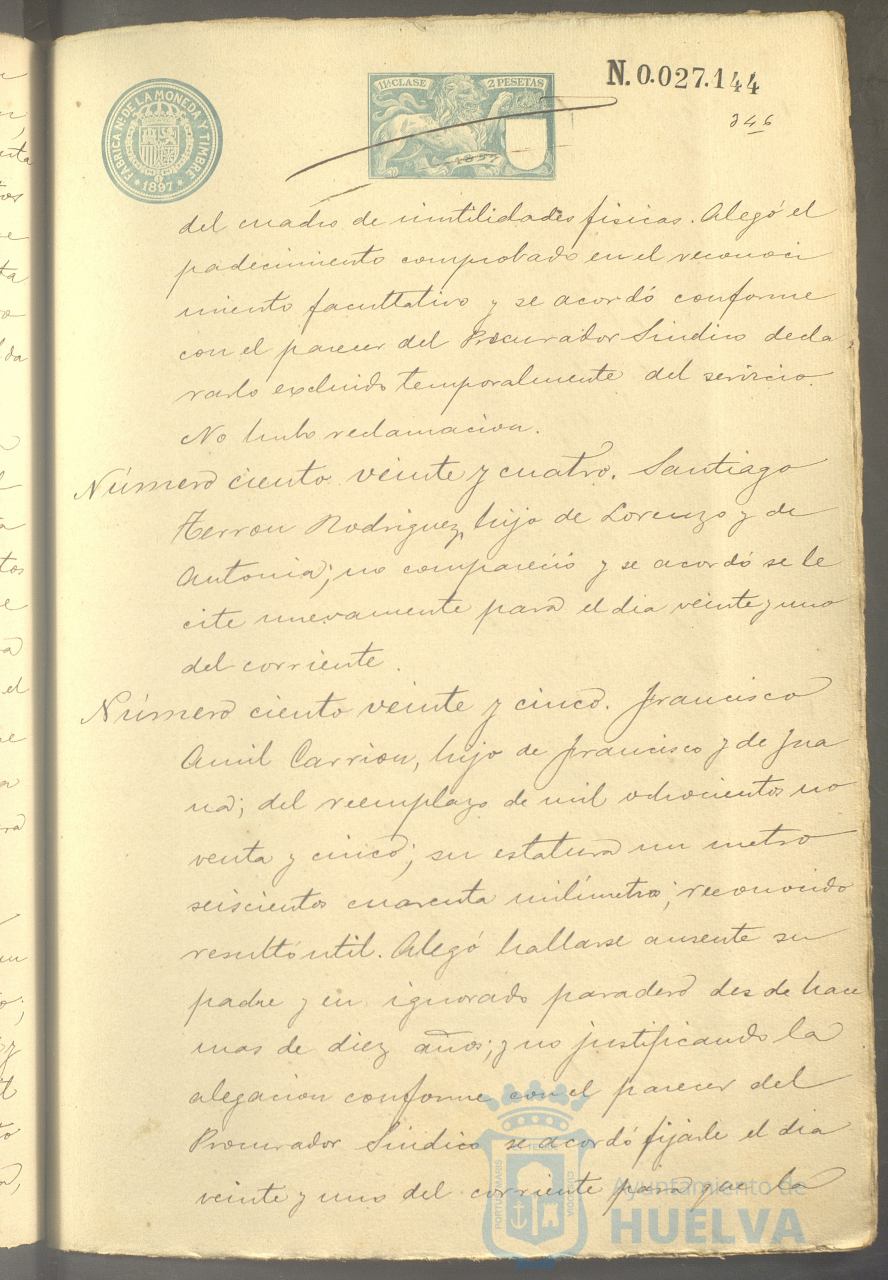 FABRICA Nal. DE LA MONEDA Y TIMBRE
* 1897 *
11ª CLASE 2 PESETAS
1897
N.0.027.144
346
del cuadro de inutilidades fisicas. Alegó el
padecimiento comprobado en el reconoci
miento facultativo y se acordó conforme
con el parecer del Procurador Sindico decla
rarlo excluido temporalmente del servicio.
No hubo reclamacion.
Número ciento veinte y cuatro. Santiago
Terron Rodriguez, hijo de Lorenzo y de
Antonia; no compareció y se acordó se le
cite nuevamente para el dia veinte y uno
del corriente.
Número ciento veinte y cinco. Francisco
Amil Carrion, hijo de Francisco y de Jua
na; del reemplazo de mil ochocientos no
venta y cinco; su estatura un metro
seiscientos cuarenta milímetros; reconocido
resultó util. Alegó hallarse ausente su
padre y en ignorado paradero desde hace
mas de diez años; y no justificando la
alegacion conforme con el parecer del
Procurador Sindico se acordó fijarle el dia
veinte y uno del corriente para que la
PORTUS MARIS ET TERRE CUSTODIA
Ayuntamiento de
HUELVA